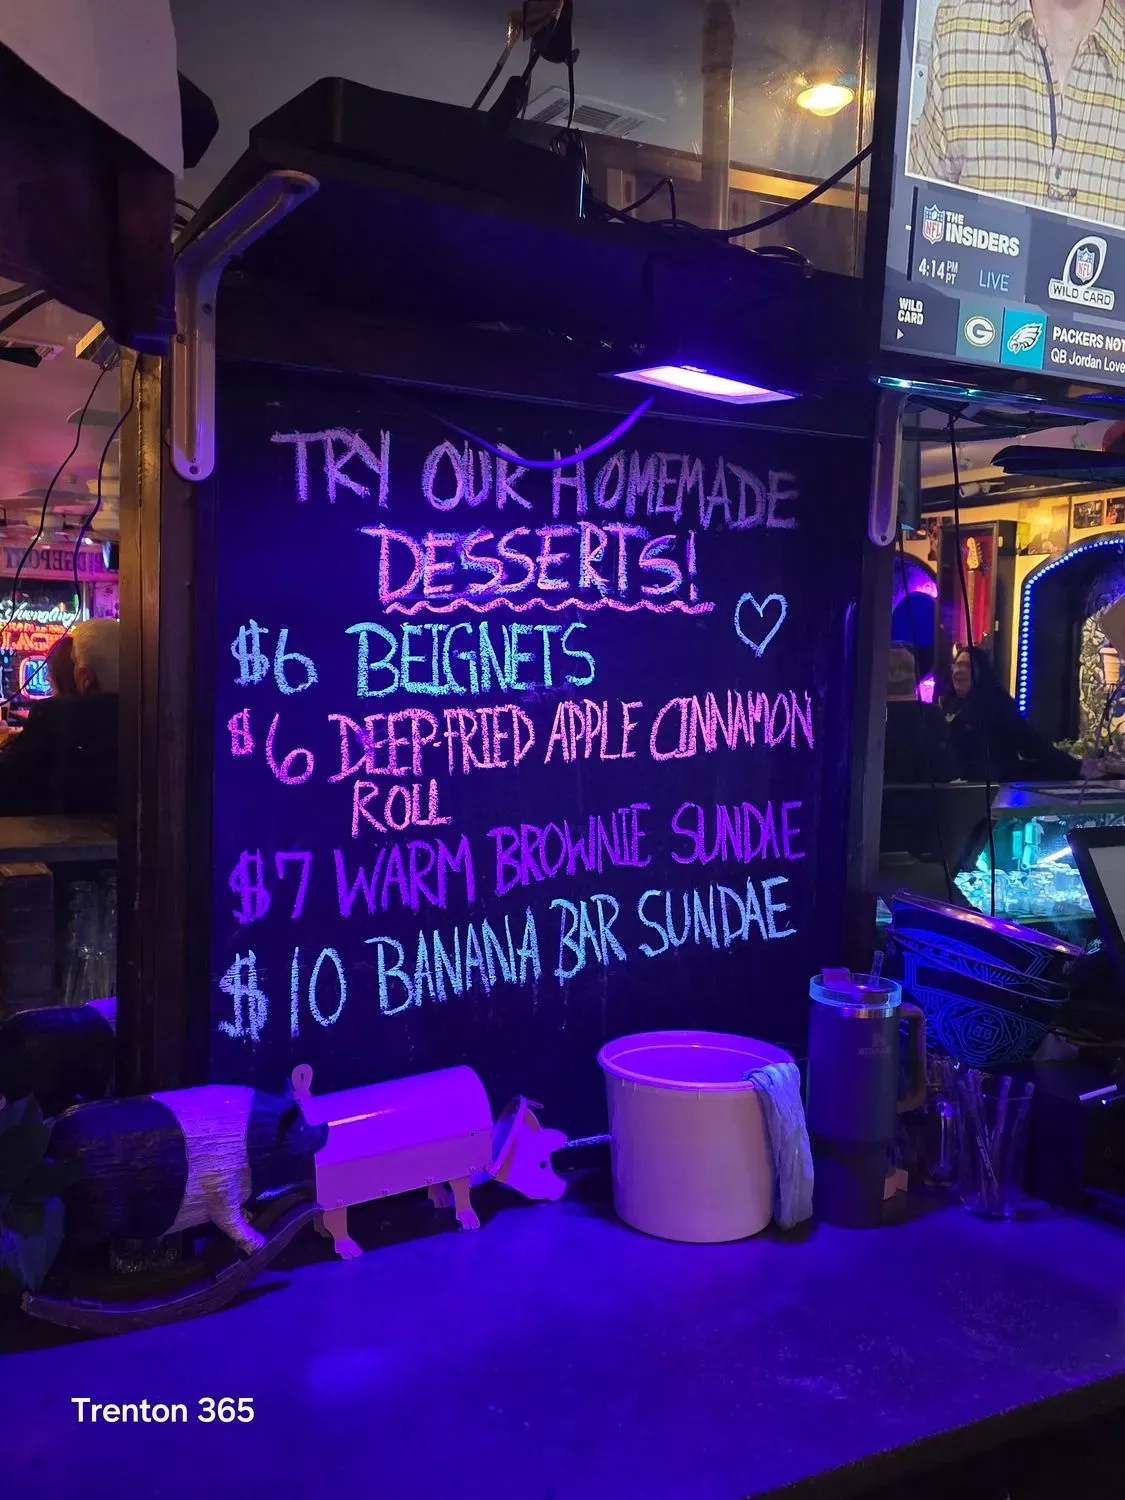 THE
INSIDERS
NFL
4:14 PM PT
LIVE
WILD CARD
WILD CARD
PACKERS NOT
QB Jordan Love
TRY OUR HOMEMADE
DESSERTS!
$6 BEIGNETS
$6 DEEP-FRIED APPLE CINNAMON
ROLL
$7 WARM BROWNIE SUNDAE
$10 BANANA BAR SUNDAE
Trenton 365